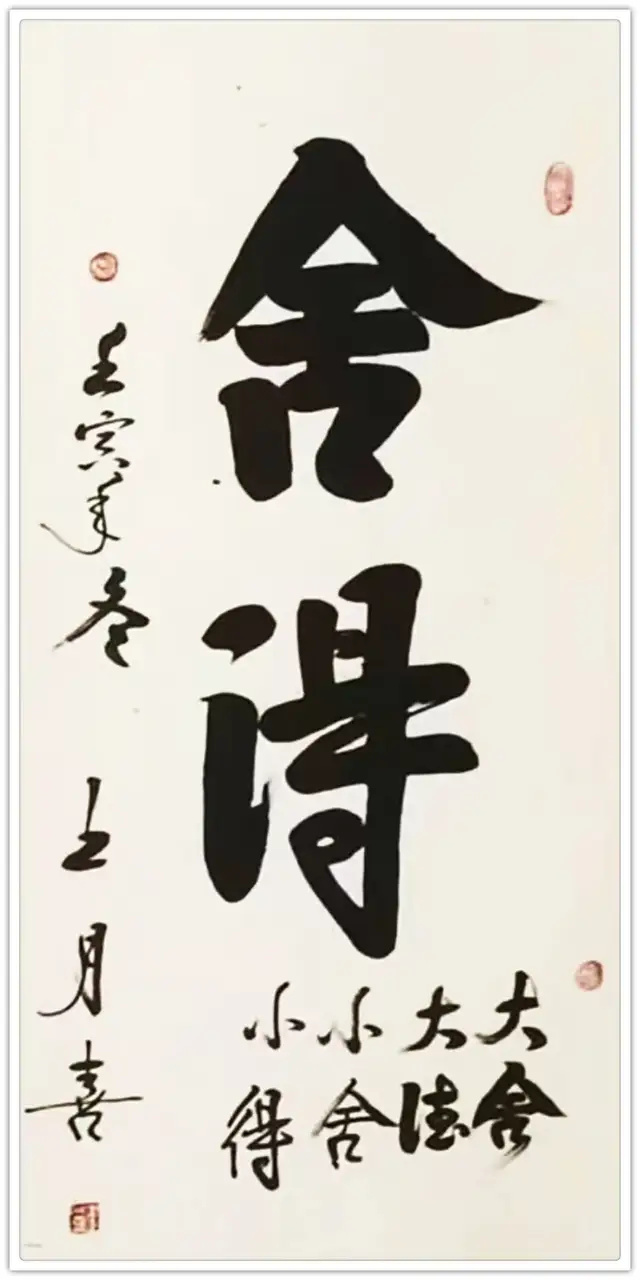 舍得
大舍
大德
小舍
小得
壬寅年冬 王月喜